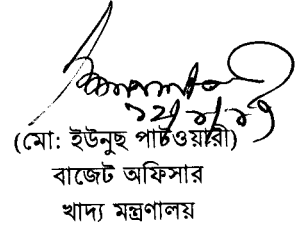 (মো: ইউনুছ পাটওয়ারী)
বাজেট অফিসার
খাদ্য মন্ত্রণালয়